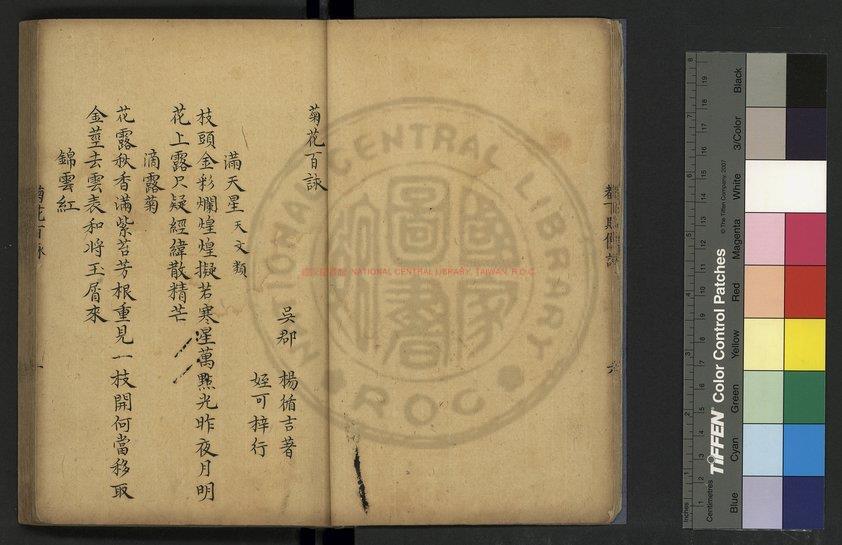 菊花百詠
吳郡 楊循吉著
姪可梓行
滿天星天文類
枝頭金彩爛煌煌擬若寒星萬點光昨夜月明
花上露只疑經緯散精芒
滴露菊
花露秋香滿紫苔芳根重見一枝開何當移取
金莖去雲表和將玉屑來
錦雲紅
菊花百詠
一
六
國家圖書館
NATIONAL CENTRAL LIBRARY, TAIWAN, R.O.C.
NATIONAL CENTRAL LIBRARY
ROC
TIFFEN Color Control Patches
© The Tiffen Company, 2007
Blue
Cyan
Green
Yellow
Red
Magenta
White
3/Color
Black
Inches
Centimetres